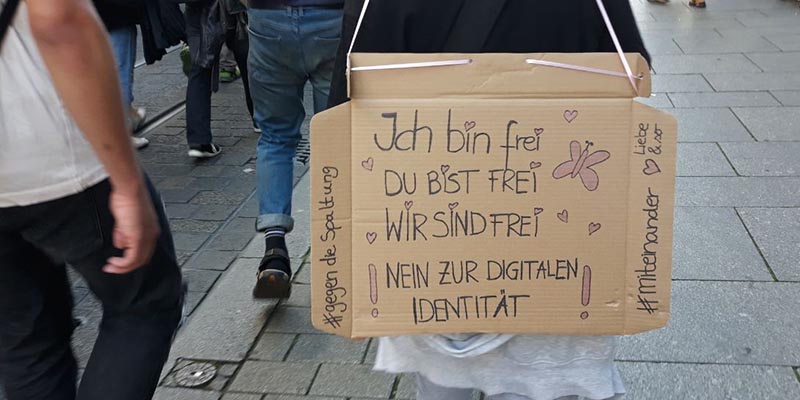 Ich bin frei
DU BIST FREI
WIR SIND FREI
NEIN ZUR DIGITALEN
IDENTITÄT
#gegen die Spaltung
#miteinander
Liebe
& co